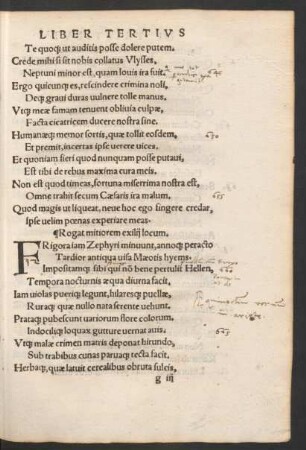 LIBER TERTIVS
Te quoqꝫ ut auditis posse dolere putem.
Crede mihi si sit nobis collatus Vlysses,
Neptuni minor est, quam Iouis ira fuit.
Ergo quicunqꝫ es, rescindere crimina noli,
Deqꝫ graui duras vulnere tolle manus.
Vtqꝫ meæ famam tenuent obliuia culpæ,
Facta cicatricem ducere nostra sine.
Humanæqꝫ memor sortis, quæ tollit eosdem,
Et premit, incertas ipse uerere uices.
Et quoniam fieri quod nunquam posse putaui,
Est tibi de rebus maxima cura meis.
Non est quod timeas, fortuna miserrima nostra est,
Omne trahit secum Cæsaris ira malum.
Quod magis ut liqueat, neue hoc ego fingere credar,
Ipse uelim pœnas experiare meas.
¶Rogat mitiorem exilij locum.
FRigora iam Zephyri minuunt, annoqꝫ peracto
Tardior antiqua uisa Mæotis hyems.
Impositamqꝫ sibi qui nō bene pertulit Hellen,
Tempora nocturnis æqua diurna facit.
Iam uiolas pueriqꝫ legunt, hilaresqꝫ puellæ,
Ruraqꝫ quæ nullo nata serente uehunt.
Prataqꝫ pubescunt uariorum flore colorum,
Indociliqꝫ loquax gutture uernat auis.
Vtqꝫ malæ crimen matris deponat hirundo,
Sub trabibus cunas paruaqꝫ tecta facit.
Herbaqꝫ, quæ latuit cerealibus obruta sulcis,
g iij